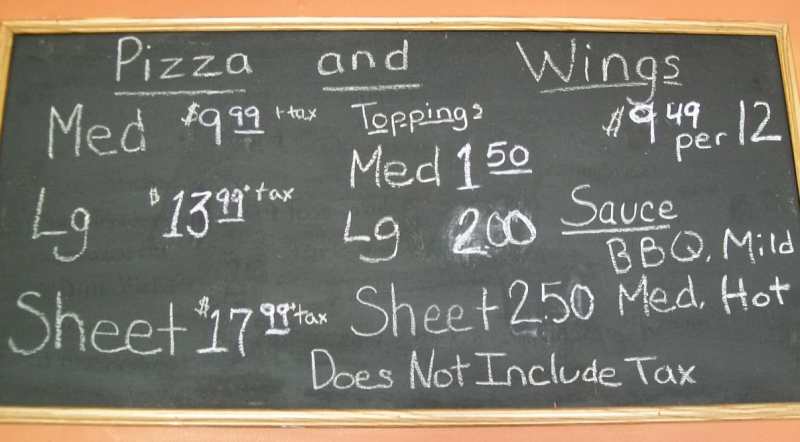 Pizza and Wings
Med $9.99 + tax
Lg $13.99 + tax
Sheet $17.99 + tax
Toppings
Med 1.50
Lg 2.00
Sheet 2.50
$9.49
per 12
Sauce
BBQ, Mild
Med, Hot
Does Not Include Tax